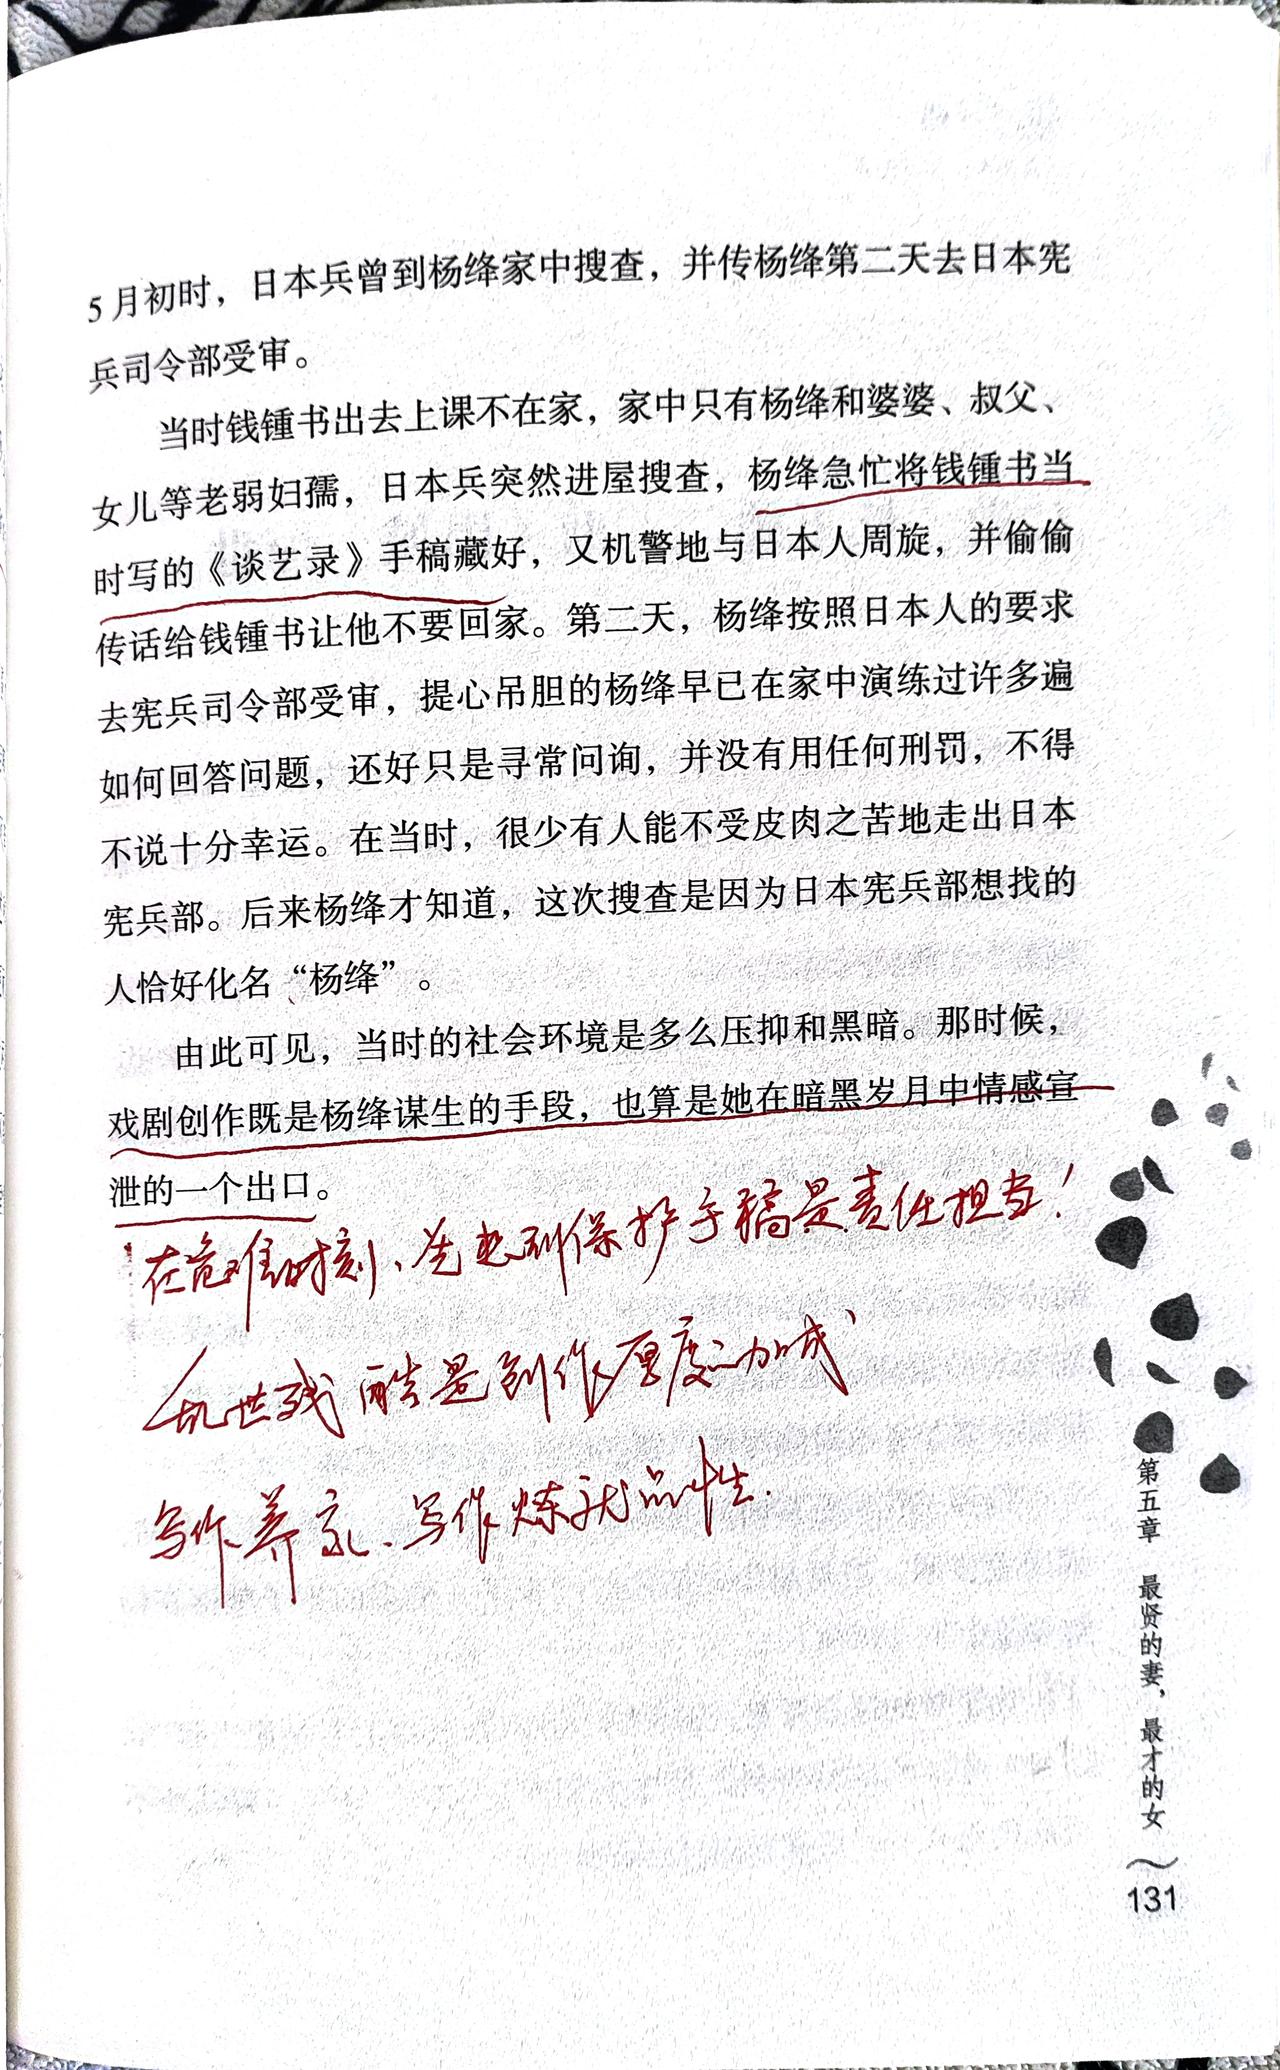 5月初时，日本兵曾到杨绛家中搜查，并传杨绛第二天去日本宪
兵司令部受审。
当时钱锺书出去上课不在家，家中只有杨绛和婆婆、叔父、
女儿等老弱妇孺，日本兵突然进屋搜查，杨绛急忙将钱锺书当
时写的《谈艺录》手稿藏好，又机警地与日本人周旋，并偷偷
传话给钱锺书让他不要回家。第二天，杨绛按照日本人的要求
去宪兵司令部受审，提心吊胆的杨绛早已在家中演练过许多遍
如何回答问题，还好只是寻常问询，并没有用任何刑罚，不得
不说十分幸运。在当时，很少有人能不受皮肉之苦地走出日本
宪兵部。后来杨绛才知道，这次搜查是因为日本宪兵部想找的
人恰好化名“杨绛”。
由此可见，当时的社会环境是多么压抑和黑暗。那时候，
戏剧创作既是杨绛谋生的手段，也算是她在暗黑岁月中情感宣
泄的一个出口。
在危难时刻、先想到保护手稿是责任担当！
乱世残酷是创作厚度的加成
写作养家、写作炼就品性.
第五章 最贤的妻，最才的女
131